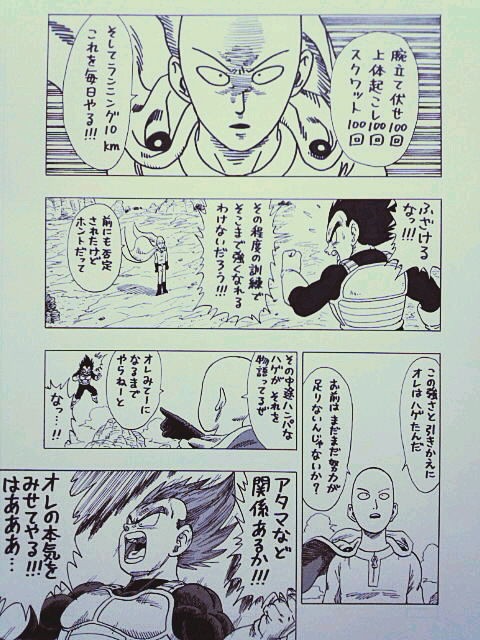 腕立て伏せ100回
上体起こし100回
スクワット100回
そしてランニング10km
これを毎日やる!!!
ふざけるなっ!!!
その程度の訓練で
そこまで強くなれる
わけないだろう!!!
前にも否定
されたけど
ホントだって
この強さと引きかえに
オレはハゲたんだ
お前はまだまだ努力が
足りないんじゃないか?
その中途ハンパな
ハゲが それを
物語ってるぜ
オレみてーに
なるまで
やらねーと
なっ…!!
アタマなど
関係あるか!!!
オレの本気を
みせてやる!!!
はあああ…